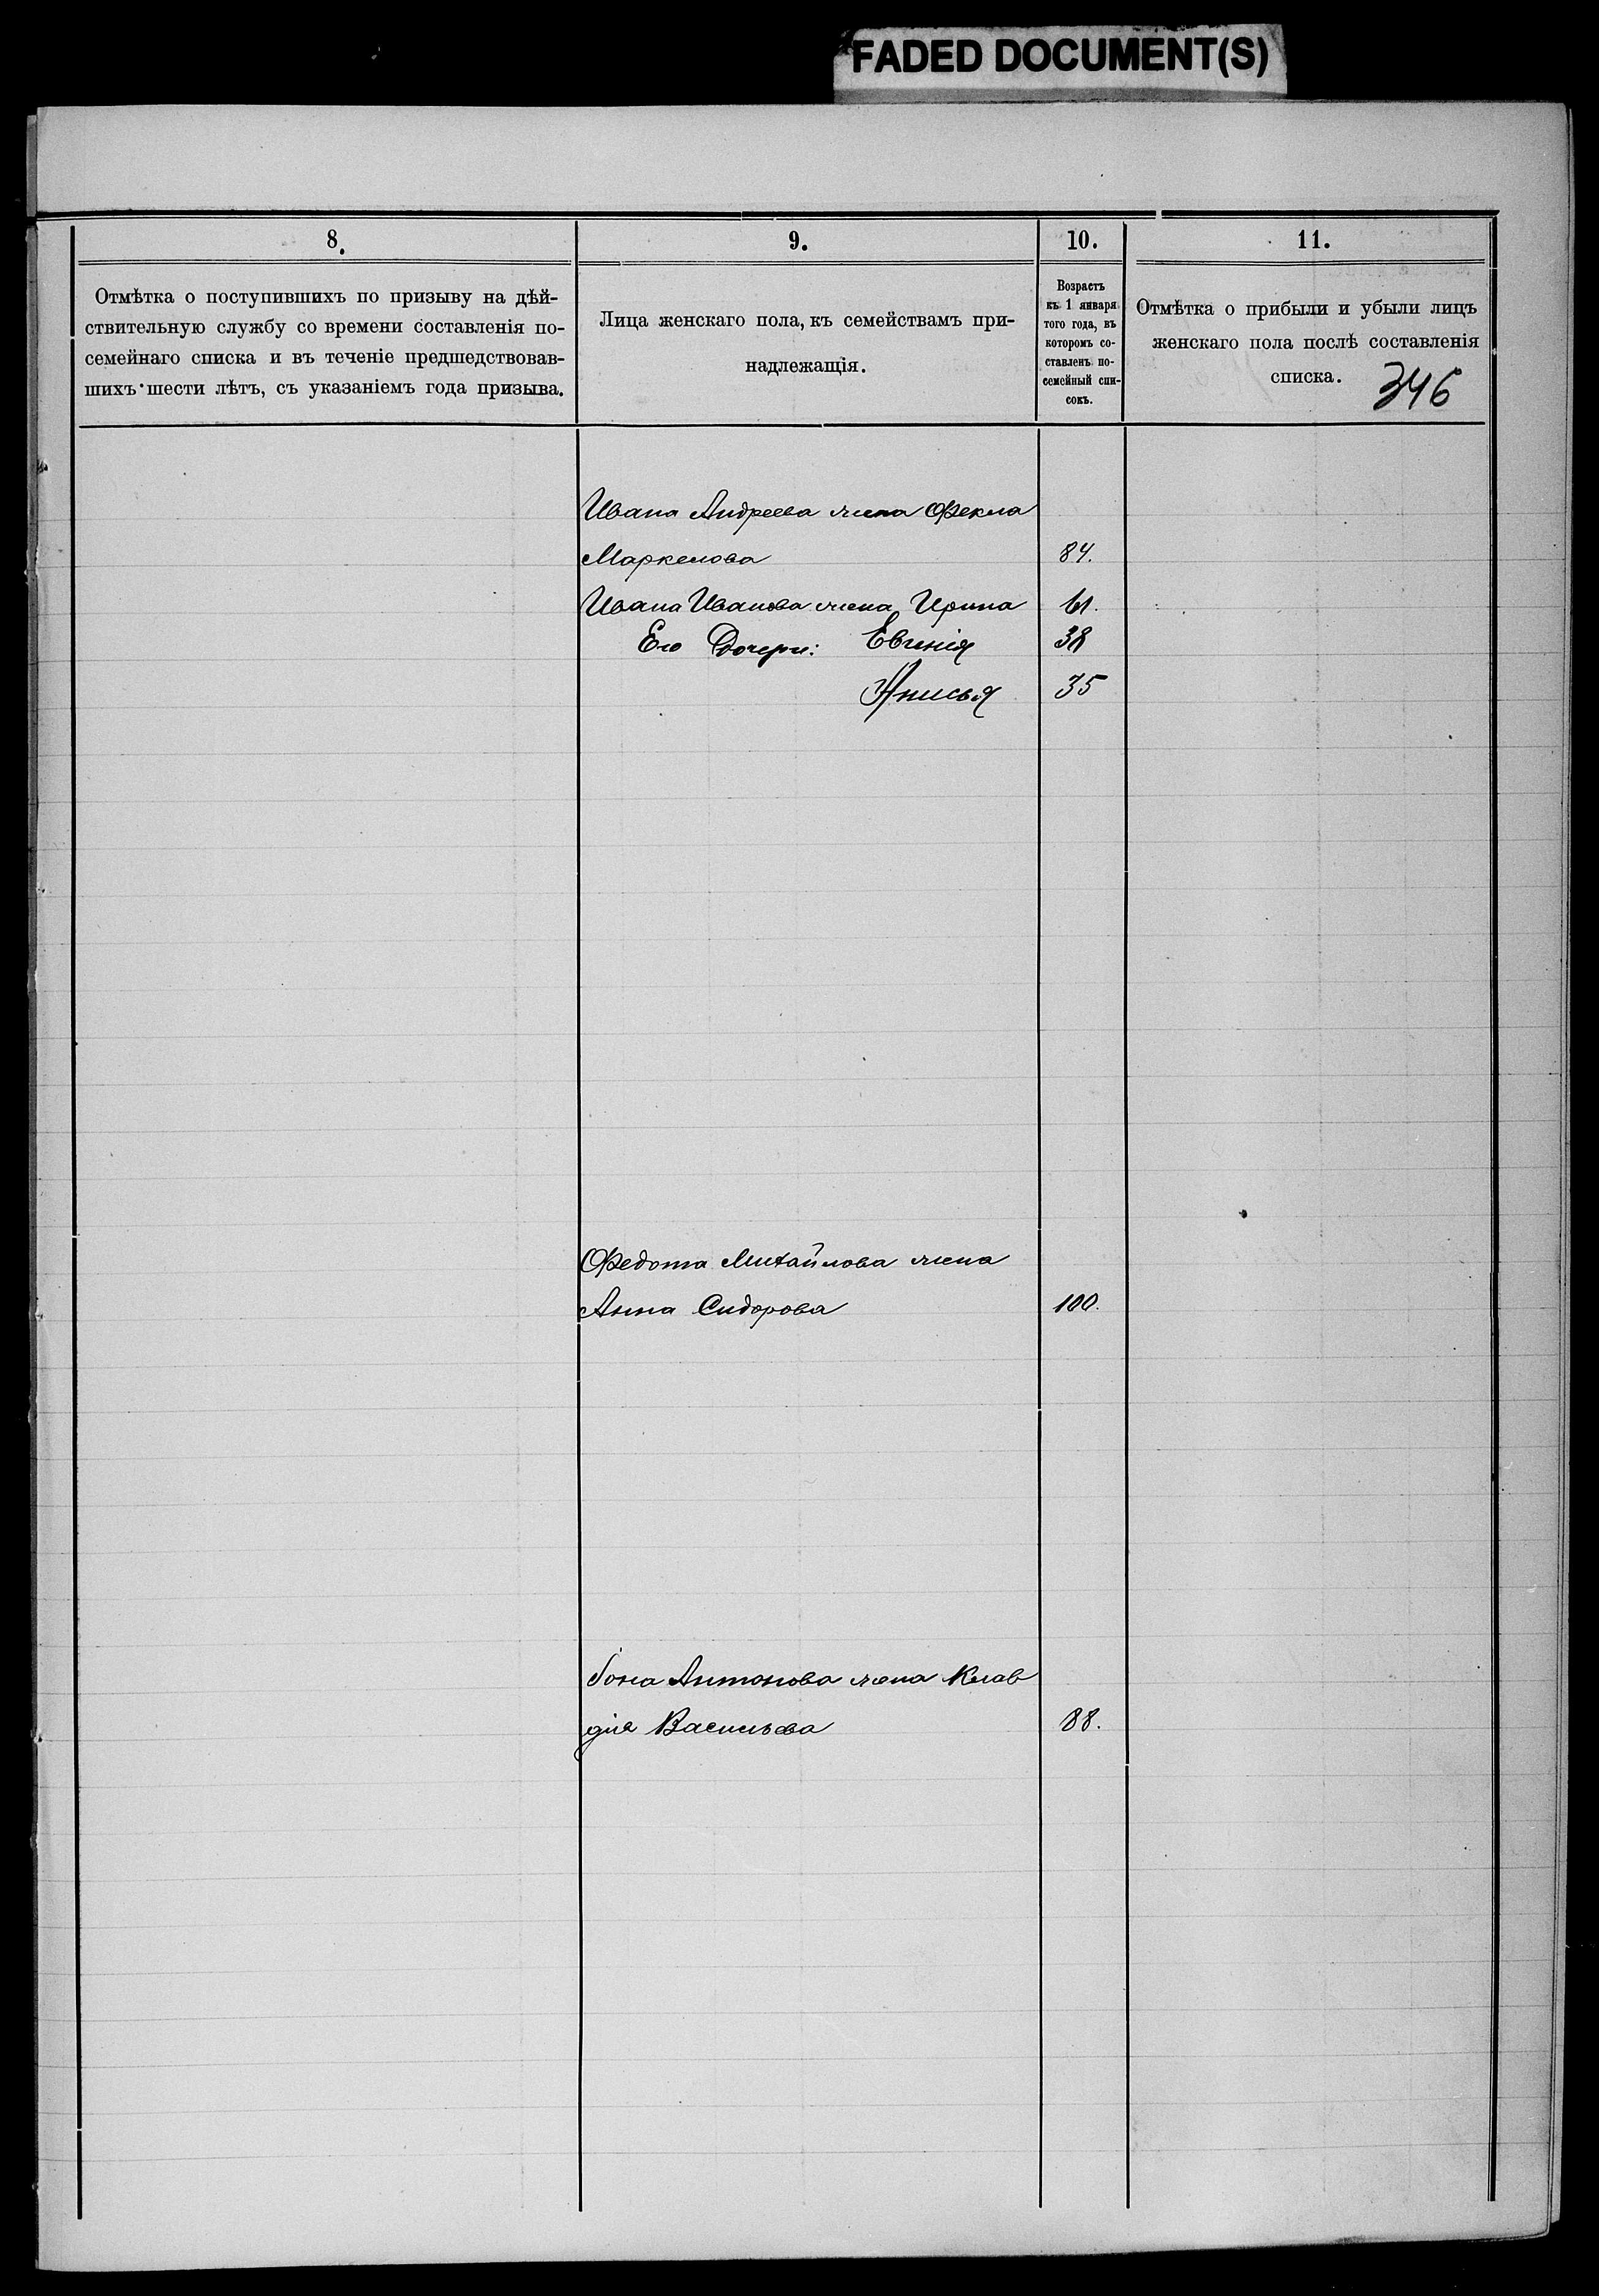 FADED DOCUMENT(S)
8.
Отмѣтка о поступившихъ по призыву на дѣй-
ствительную службу со времени составленія по-
семейнаго списка и въ теченіе предшедствовав-
шихъ шести лѣтъ, съ указаніемъ года призыва.
9.
Лица женскаго пола, къ семействамъ при-
надлежащія.
10.
Возрастъ
къ 1 января
того года, въ
которомъ со-
ставленъ по-
семейный спи-
сокъ.
11.
Отмѣтка о прибыли и убыли лицъ
женскаго пола послѣ составленія
списка.
346
Ивана Андреева жена Фекла
Маркелова 84.
Ивана Иванова жена Ирина 61.
Его Дочери: Евгенія 38
Анисья 35
Федота Михайлова жена
Анна Сидорова 100.
Антонова жена Клав
дія Васильева 88.